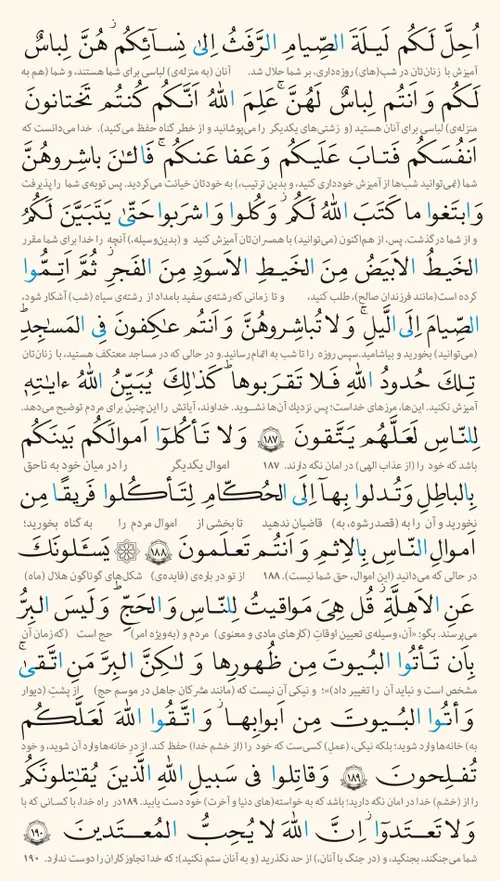 اُحِلَّ لَكُم لَيلَةَ الصِّيامِ الرَّفَثُ اِلىٰ نِسائِكُم ۚ هُنَّ لِباسٌ
آمیزش با زنان‌تان در شب(های) روزه‌داری، بر شما حلال شد. آنان (به منزله‌ی) لباسی برای شما هستند، و شما (هم به
لَكُم وَ اَنتُم لِباسٌ لَهُنَّ ۗ عَلِمَ اللهُ اَنَّكُم كُنتُم تَختانونَ
منزله‌ی) لباسی برای آنان هستید (و زشتی‌های یکدیگر را می‌پوشانید و از خطر گناه حفظ می‌کنید). خدا می‌دانست که
اَنفُسَكُم فَتابَ عَلَيكُم وَ عَفا عَنكُم ۖ فَالـٰنَ باشِروهُنَّ
شما (نمی‌توانید شب‌ها از آمیزش خودداری کنید، و بدین ترتیب،) به خودتان خیانت می‌کردید. پس توبه‌ی شما را پذیرفت
وَ ابتَغوا ما كَتَبَ اللهُ لَكُم ۚ وَ كُلوا وَ اشرَبوا حَتّىٰ يَتَبَيَّنَ لَكُمُ
و از شما درگذشت. پس، از هم‌اکنون (می‌توانید) با همسران‌تان آمیزش کنید و (بدین‌وسیله،) آنچه را خدا برای شما مقرر
الخَيطُ الاَبيَضُ مِنَ الخَيطِ الاَسوَدِ مِنَ الفَجرِ ۖ ثُمَّ اَتِمُّوا
کرده است (مانند فرزندان صالح)، طلب کنید، و تا زمانی که رشته‌ی سفید بامداد از رشته‌ی سیاه (شب) آشکار شود،
الصِّيامَ اِلَى اللَّيلِ ۚ وَ لا تُباشِروهُنَّ وَ اَنتُم عاكِفونَ فِى المَساجِدِ ۗ
(می‌توانید) بخورید و بیاشامید. سپس روزه را تا شب به اتمام رسانید. و در حالی که در مساجد معتکف هستید، با زنان‌تان
تِلكَ حُدودُ اللهِ فَلا تَقرَبوها ۗ كَذٰلِكَ يُبَيِّنُ اللهُ ءاياتِهِ
آمیزش نکنید. این‌ها، مرزهای خداست؛ پس نزدیک آن‌ها نشوید. خداوند، آیاتش را این‌چنین برای مردم توضیح می‌دهد.
لِلنّاسِ لَعَلَّهُم يَتَّقونَ ﴿١٨٧﴾ وَ لا تَأكُلوا اَموالَكُم بَينَكُم
باشد که خود را (از عذاب الهی) در امان نگه دارند. ۱۸۷ اموال یکدیگر را در میان خود به ناحق
بِالباطِلِ وَ تُدلوا بِها اِلَى الحُكّامِ لِتَأكُلوا فَريقًا مِن
نخورید و آن را به (قصد رشوه، به) قاضیان ندهید تا بخشی از اموال مردم را به گناه بخورید؛
اَموالِ النّاسِ بِالاِثمِ وَ اَنتُم تَعلَمونَ ﴿١٨٨﴾ يَسـَٔلونَكَ
در حالی که می‌دانید (این اموال، حق شما نیست). ۱۸۸ از تو درباره‌ی (فایده‌ی) شکل‌های گوناگون هلال (ماه)
عَنِ الاَهِلَّةِ ۖ قُل هِىَ مَواقيتُ لِلنّاسِ وَ الحَجِّ ۗ وَ لَيسَ البِرُّ
می‌پرسند. بگو: «آن، وسیله‌ی تعیین اوقاتِ (کارهای مادی و معنوی) مردم و (به‌ویژه امرِ) حج است (که زمان آن
بِاَن تَأتُوا البُيوتَ مِن ظُهورِها وَ لٰكِنَّ البِرَّ مَنِ اتَّقىٰ ۗ
مشخص است و نباید آن را تغییر داد)»؛ و نیکی آن نیست که (مانند مشرکان جاهل در موسم حج) از پشتِ (دیوار
وَ أتُوا البُيوتَ مِن اَبوابِها ۚ وَ اتَّقُوا اللهَ لَعَلَّكُم
به) خانه‌ها وارد شوید؛ بلکه نیکی، (عملِ) کسی‌ست که خود را (از خشم خدا) حفظ کند. از درِ خانه‌ها وارد آن شوید، و خود
تُفلِحونَ ﴿١٨٩﴾ وَ قاتِلوا فى سَبيلِ اللهِ الَّذينَ يُقاتِلونَكُم
را از (خشمِ) خدا در امان نگه دارید؛ باشد که به خواسته(های دنیا و آخرت) خود دست یابید. ۱۸۹ در راه خدا، با کسانی که با
وَ لا تَعتَدوا ۚ اِنَّ اللهَ لا يُحِبُّ المُعتَدينَ ﴿١٩٠﴾
شما می‌جنگند، بجنگید، و (در جنگ با آنان،) از حد نگذرید (و به آنان ستم نکنید)؛ که خدا تجاوزکاران را دوست ندارد. ۱۹۰